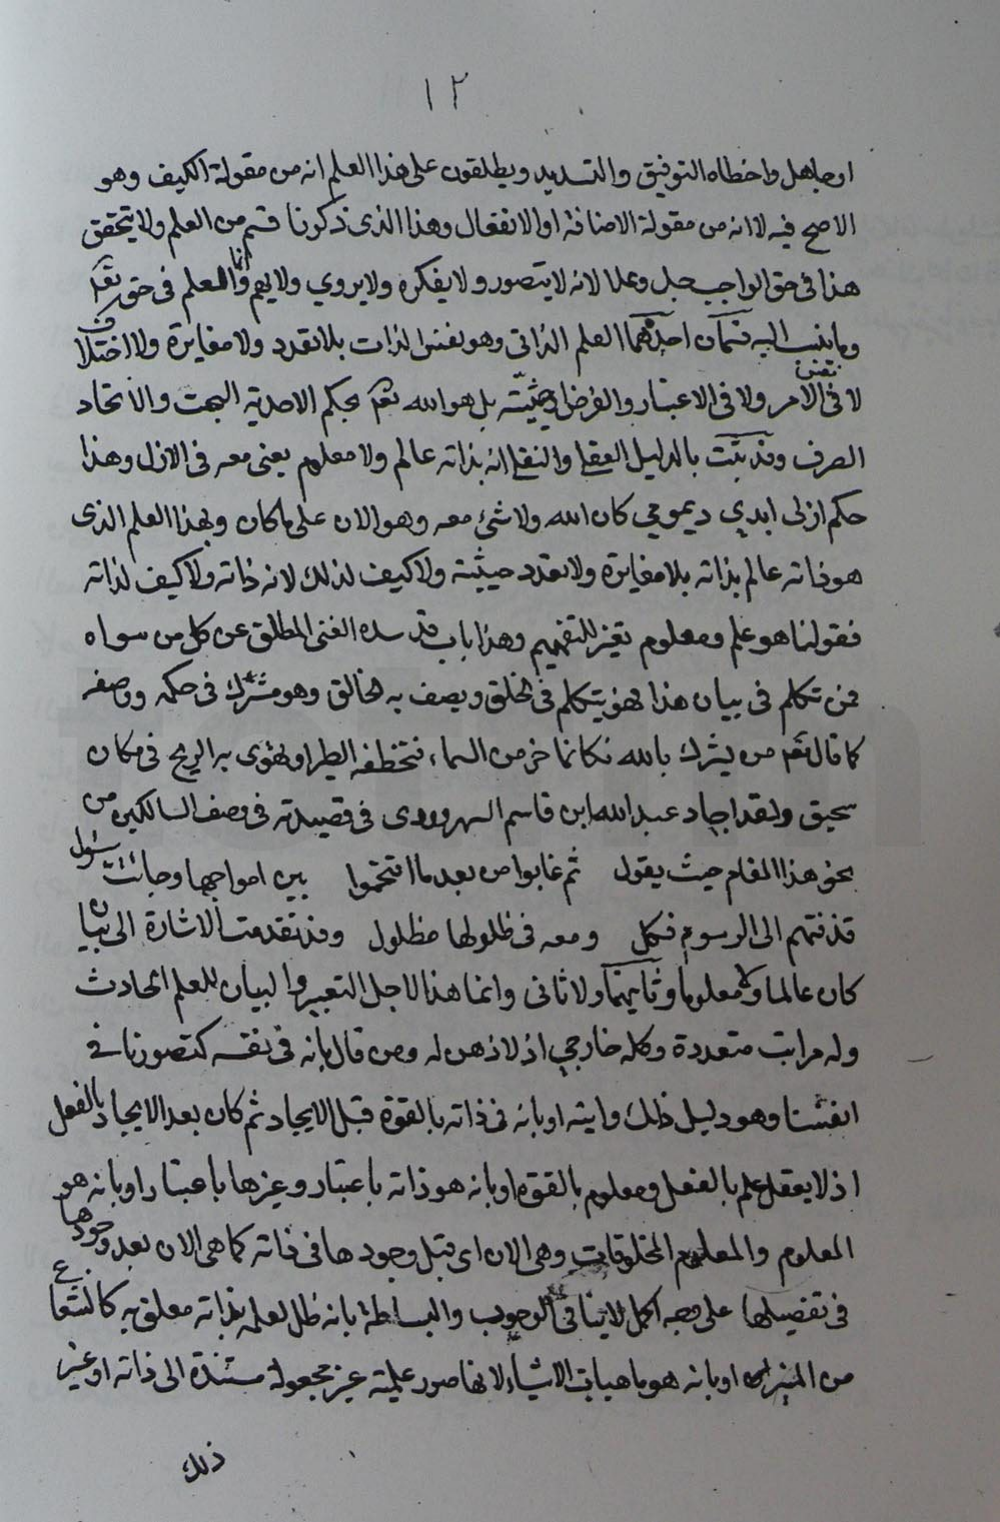 ١٢
او جاهل واخطاه التوفيق والتسديد ويطلقون على هذا العلم انه من مقولة الكيف وهو
الاصح فيه لا انه من مقولة الاضافة او الانفعال وهذا الذى ذكرنا قسم من العلم ولا يتحقق
هذا فى حق الواجب جل وعلا لانه لا يتصور ولا يفكره ولا يروي ولا يهم واما العلم فى حق تعه
وما ينسب اليه قسمان احدهما العلم الذاتى وهو نفس الذات بلا تعدد ولا مغايرة ولا اختلاف
لا فى نفس الامر ولا فى الاعتبار والفرض الحيثيته بل هو الله تعه بحكم الاحدية البحت والاتحاد
الصرف وقد ثبت بالدليل العقلى والنقلى انه بذاته عالم ولا معلوم يعنى معه فى الازل وهذا
حكم ازلى ابدي ديمومي كان الله ولا شئ معه وهو الان على ما كان وبهذا العلم الذى
هو ذاته عالم بذاته بلا مغايرة ولا تعدد حيثية ولا كيف لذلك لانه ذاته ولا كيف لذاته
فقولنا هو علم ومعلوم تعبير للتفهيم وهذا باب قد سده الغنى المطلق عن كل من سواه
فمن تكلم فى بيان هذا فهو يتكلم فى الخلق ويصف به الخالق وهو مشرك فى حكمه ووصفه
كما قال تعه من يشرك بالله فكانما خر من السماء فتخطفه الطير او تهوى به الريح فى مكان
سحيق ولقد اجاد عبد الله ابن قاسم السهروردى فى قصيدته فى وصف السالكين من
نحو هذا المقام حيث يقول ثم غابوا من بعد ما اقتحموا بين امواجها وجائت سيول
قذفتهم الى الرسوم فكل ومعه فى طلولها مطلول وقد تقدمت الاشارة الى بيان
كان عالما ولا معلوما وثانيهما ولا ثانى وانما هذا لاجل التعبير والبيان للعلم الحادث
وله مراتب متعددة وكله خارجي اذ لا ذهن له ومن قال بانه فى نفسه كتصورنا فى
انفسنا وهو دليل ذلك وايته او بانه فى ذاته بالقوة قبل الايجاد ثم كان بعد الايجاد بالفعل
اذ لا يعقل علم بالفعل ومعلوم بالقوة او بانه هو ذاته باعتبار وغيرها باعتبار او بانه هو
المعلوم والمعلوم المخلوقات وهى الان اى قبل وجودها فى ذاته كما هى الان بعد وجودها
فى تفصيلها على وجه اكمل لا ينافى الوجوب والبساطة بانه ظل لعلمه بذاته معلق به كالشعاع
من المنير او بانه هو ماهيات الاشياء لانها صور علمية غير مجعولة مستندة الى ذاته او غير
ذلك